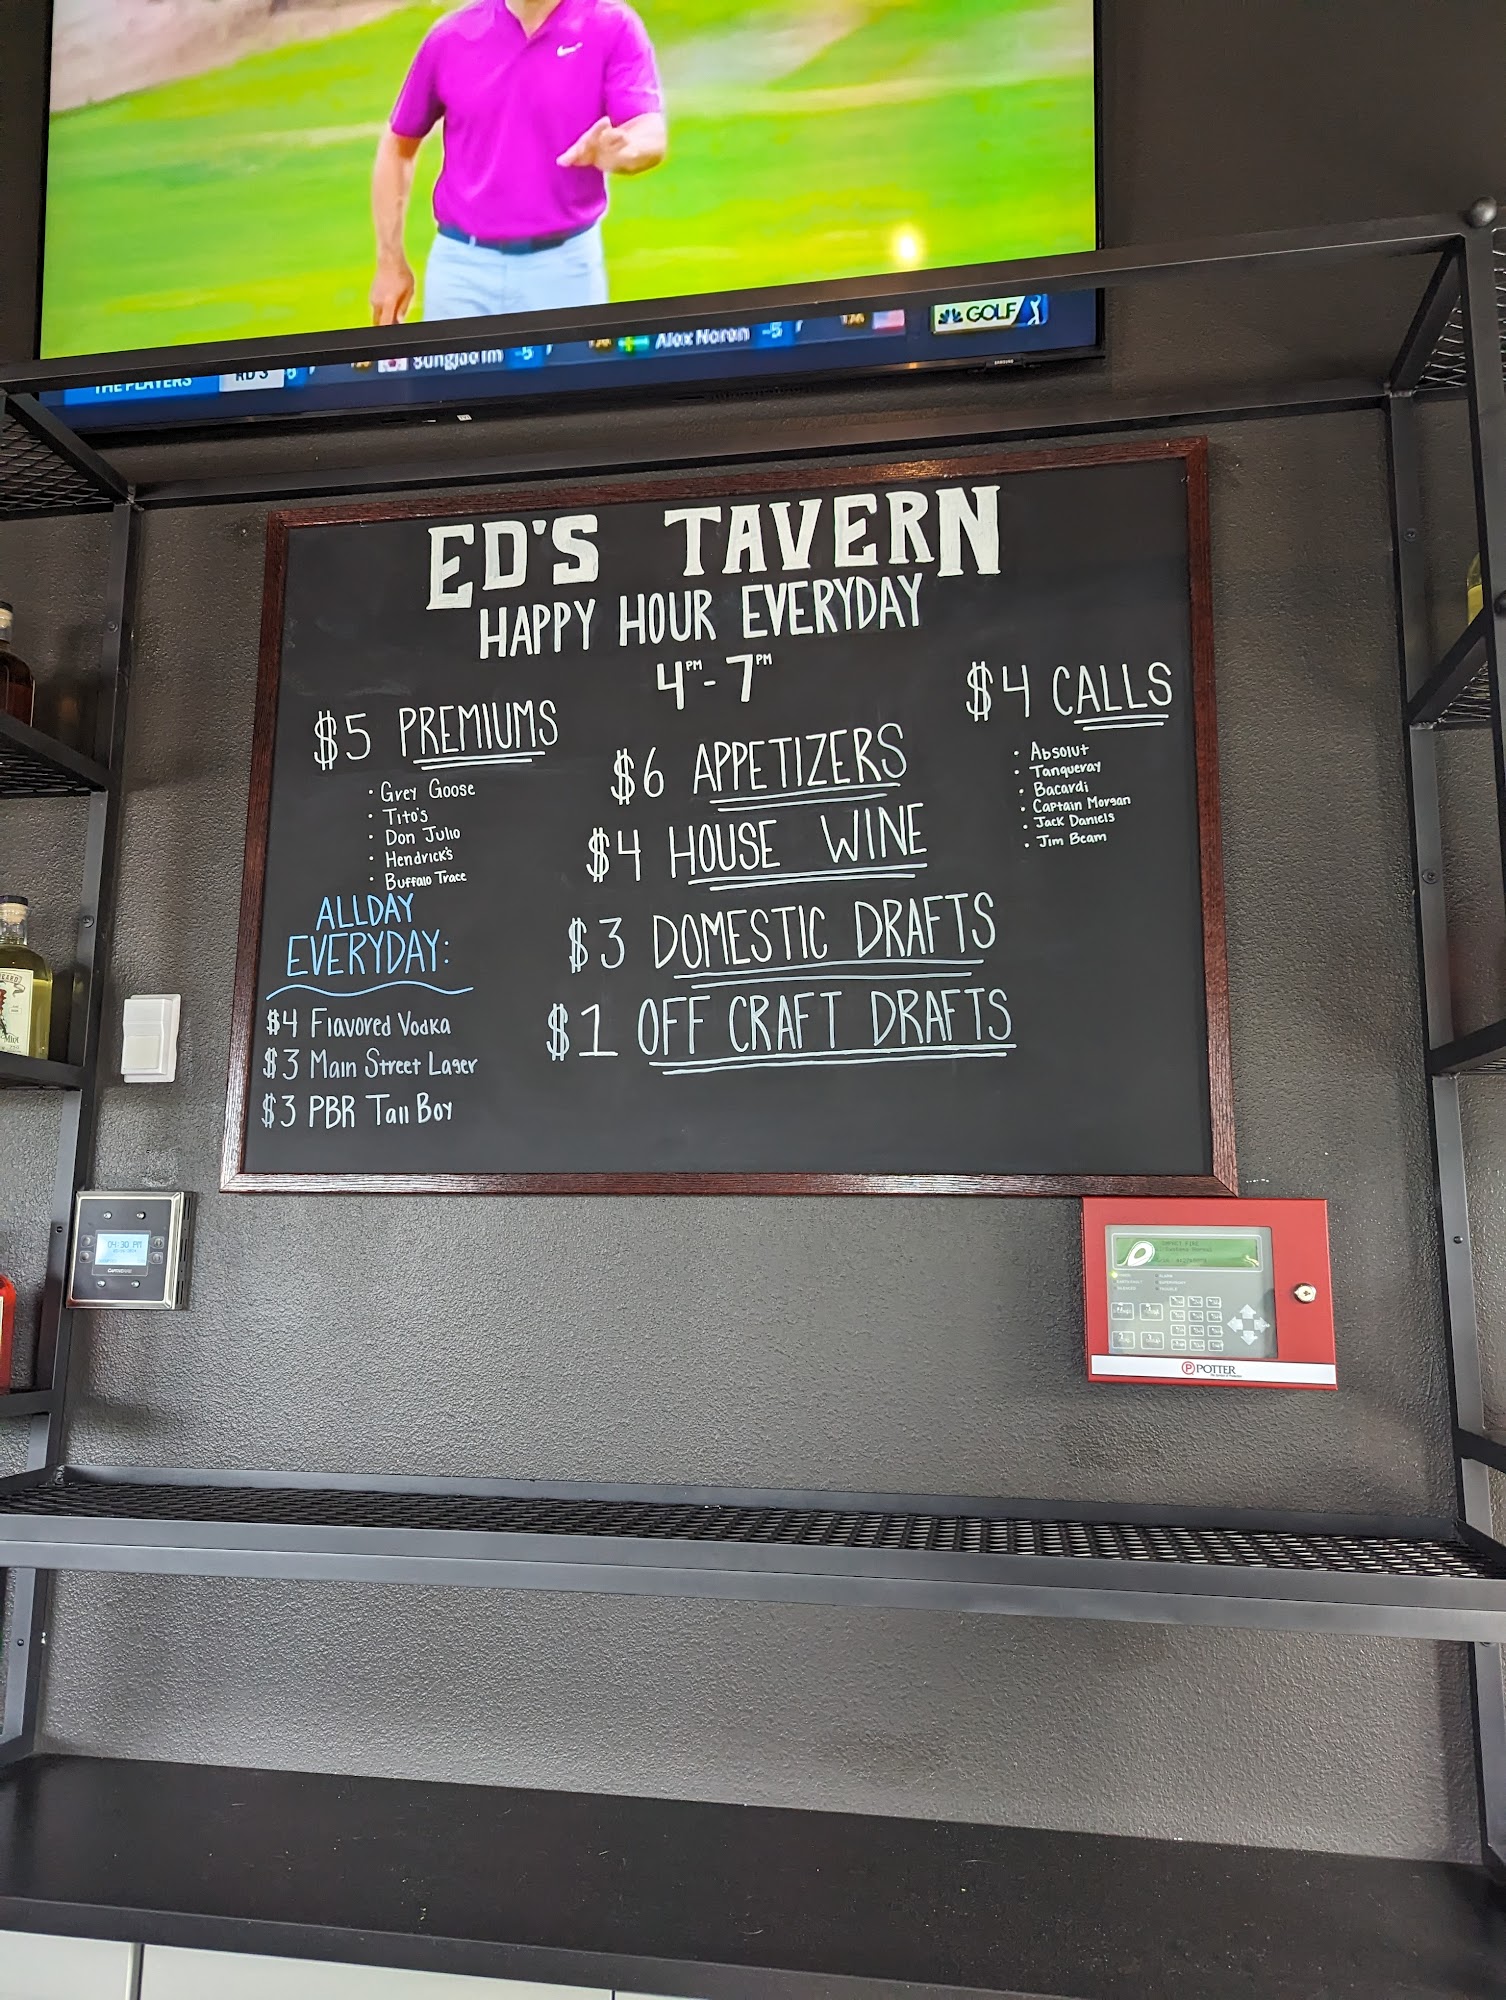 THE PLAYERS RD 3 Sungjae Im -5 Alex Noren -5 GOLF
ED'S TAVERN
HAPPY HOUR EVERYDAY
4PM - 7PM
$5 PREMIUMS
· Grey Goose
· Tito's
· Don Julio
· Hendrick's
· Buffalo Trace
ALLDAY
EVERYDAY:
$4 Flavored Vodka
$3 Main Street Lager
$3 PBR Tall Boy
$6 APPETIZERS
$4 HOUSE WINE
$3 DOMESTIC DRAFTS
$1 OFF CRAFT DRAFTS
$4 CALLS
· Absolut
· Tanqueray
· Bacardi
· Captain Morgan
· Jack Daniels
· Jim Beam
04:30 PM
POTTER